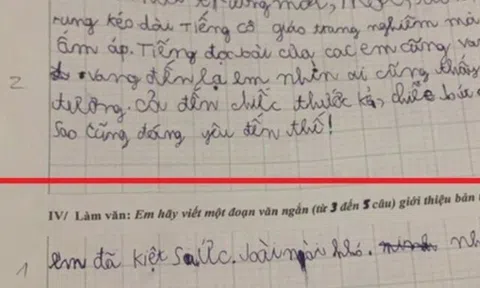 rung kéo dài Tiếng cô giáo trang nghiêm mà
ấm áp. Tiếng đọc bài của các em cũng va
vang đến lạ em nhìn ai cũng thấy
2
tương. Cả đến chiếc thước kẻ, chiếc bút
sao cũng đáng yêu đến thế!
IV/ Làm văn: Em hãy viết một đoạn văn ngắn (từ 3 đến 5 câu) giới thiệu bản
1
em đã kiệt sức. bài ngài khó.